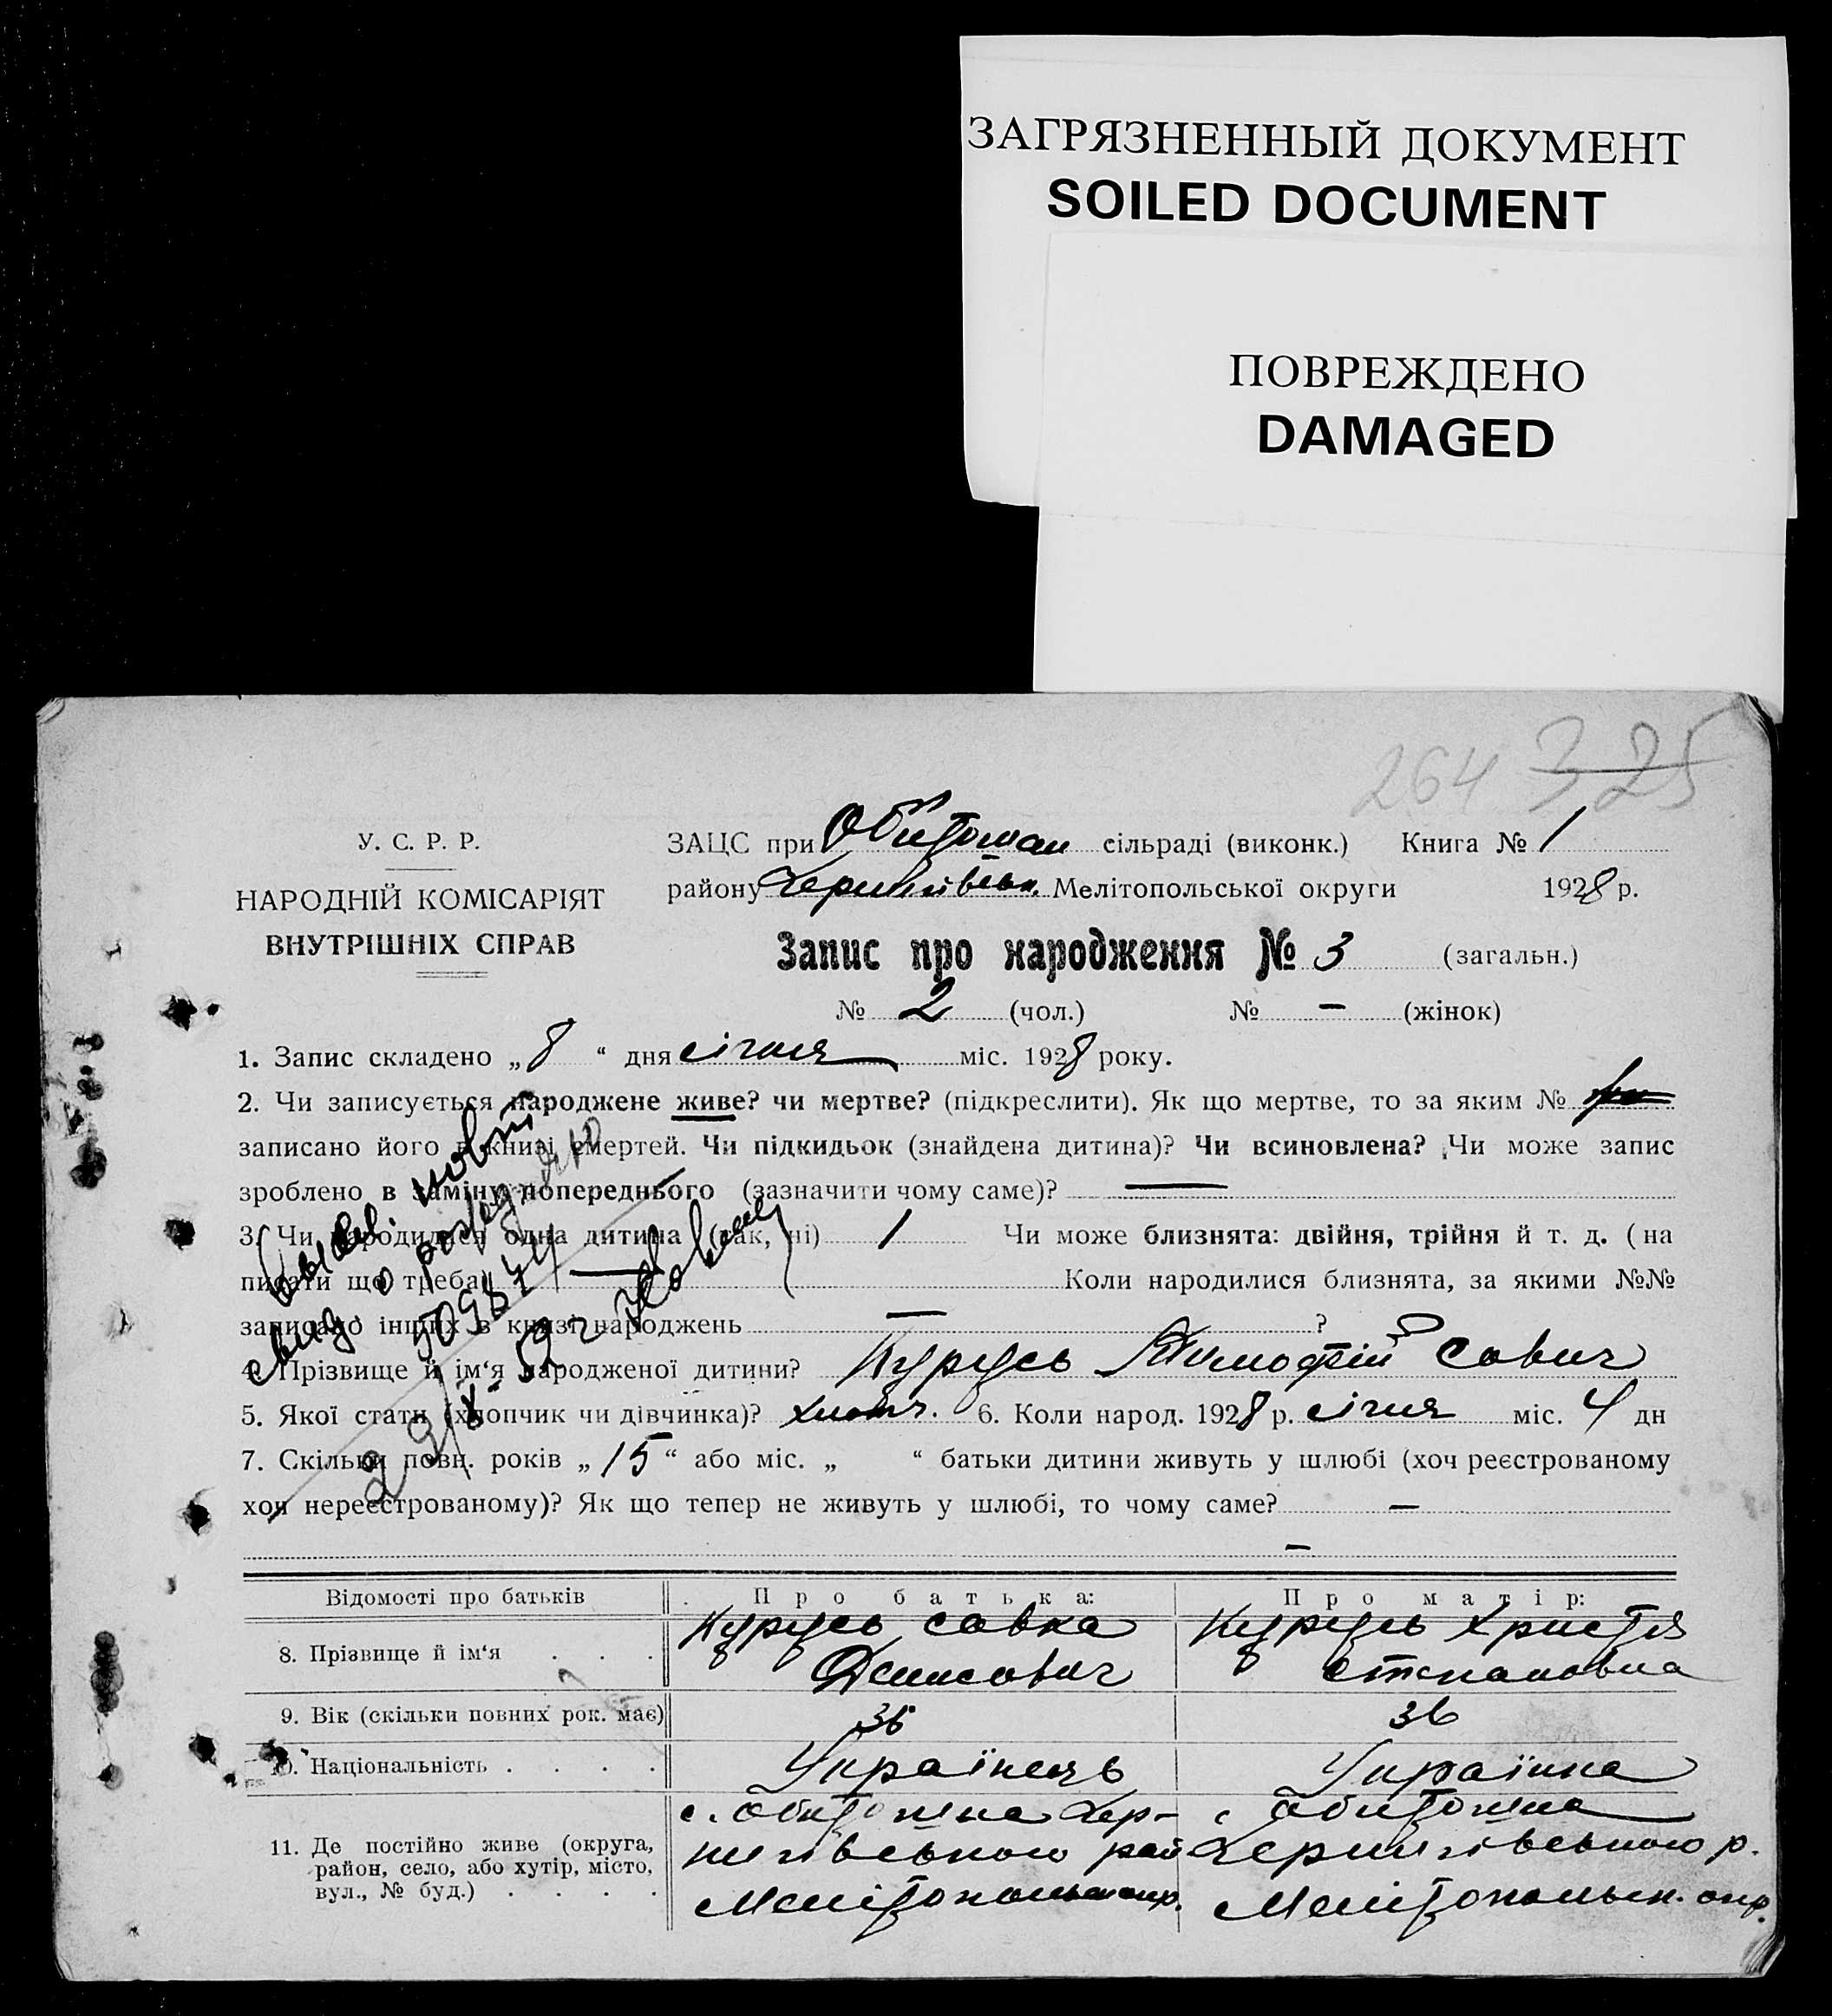 ЗАГРЯЗНЕННЫЙ ДОКУМЕНТ
SOILED DOCUMENT
ПОВРЕЖДЕНО
DAMAGED
264 325
У. С. Р. Р.
НАРОДНІЙ КОМІСАРІЯТ
ВНУТРІШНІХ СПРАВ
ЗАЦС при сільраді (виконк.) Книга № 1
району Чернигівськ. Мелітопольської округи 1928 р.
Запис про народження № 3 (загальн.)
№ 2 (чол.) № — (жінок)
1. Запис складено „ 8 “ дня січня міс. 1928 року.
2. Чи записується народжене живе? чи мертве? (підкреслити). Як що мертве, то за яким №
записано його в книзі смертей. Чи підкидьок (знайдена дитина)? Чи всиновлена? Чи може запис
зроблено в заміну попереднього (зазначити чому саме)? —
3. Чи народилася одна дитина (так, ні) 1 Чи може близнята: двійня, трійня й т. д. (на
писати що треба) — Коли народилися близнята, за якими №№
записано інших в книзі народжень — ?
4. Прізвище й ім‘я народженої дитини? Курусь Тимофій Савич
5. Якої стати (хлопчик чи дівчинка)? хлопч. 6. Коли народ. 1928 р. січня міс. 4 дн
7. Скільки повн. років „ 15 “ або міс. „ “ батьки дитини живуть у шлюбі (хоч реєстрованому
хоч нереєстрованому)? Як що тепер не живуть у шлюбі, то чому саме? —
—
Відомості про батьків Про батька: Про матір:
8. Прізвище й ім‘я . . . Курусь Савка Курусь Христя
Денисович Степановна
9. Вік (скільки повних рок. має) 36 36
10. Національність . . . . Українець Українка
с. Обитошна Чер- с Обитошна
11. Де постійно живе (округа,
район, село, або хутір, місто,
вул., № буд.) . . . .
нигівського рай Чернигівського р.
Мелітопольськ. окр.